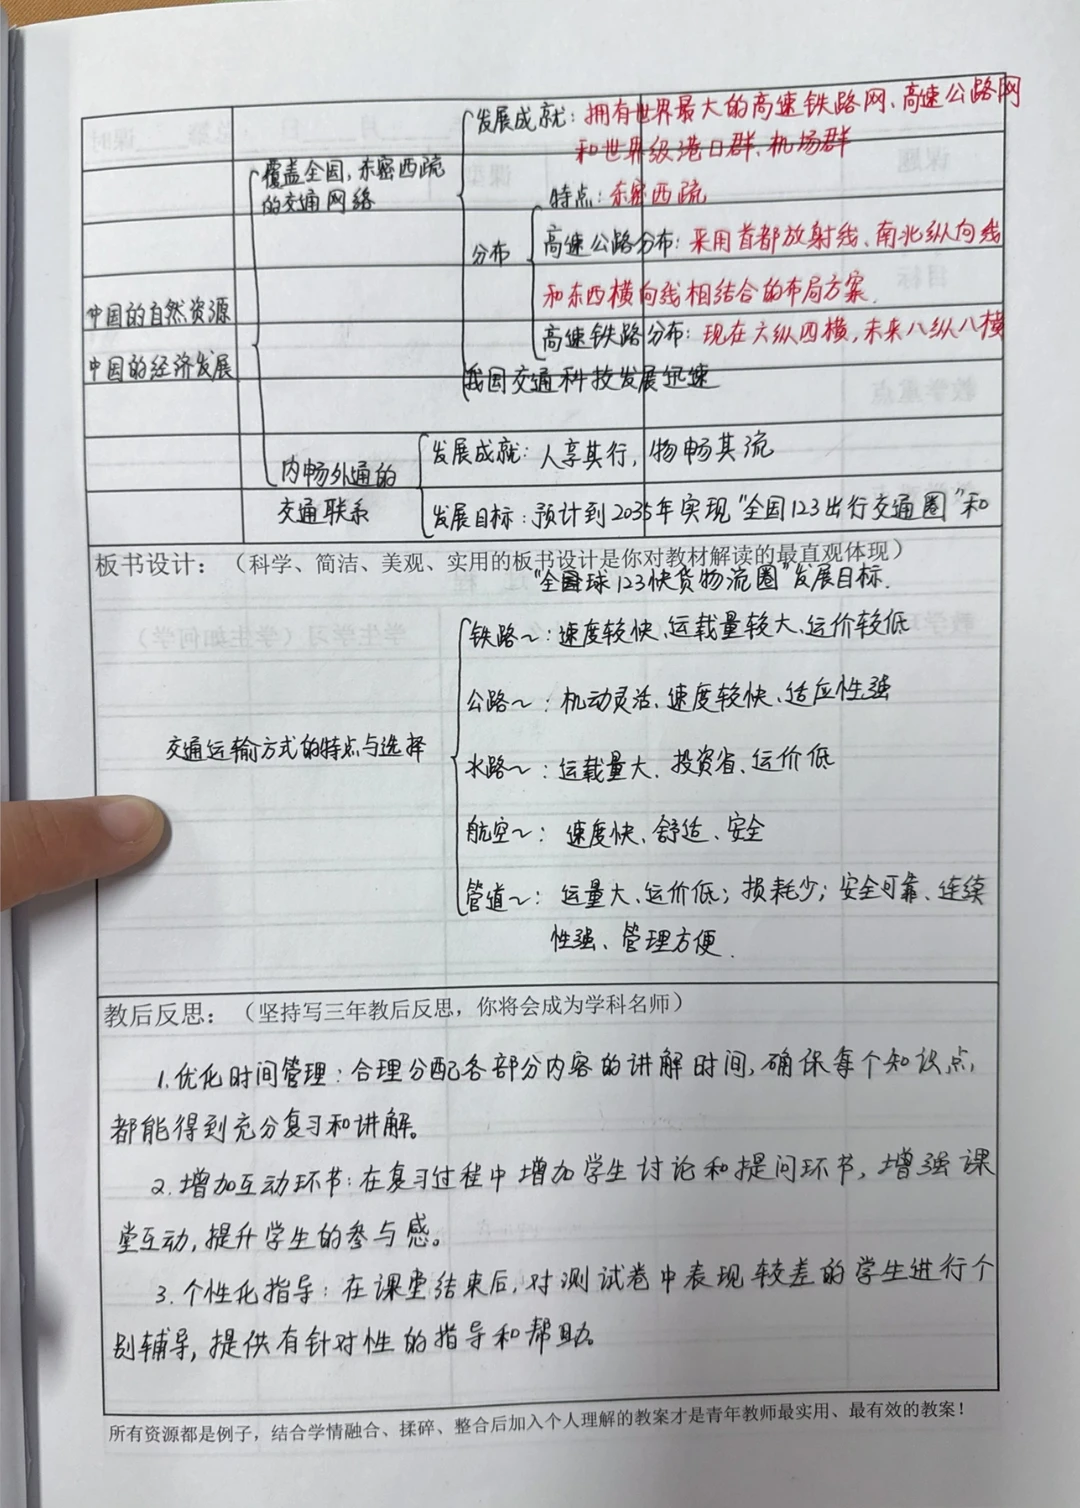 发展成就：拥有世界最大的高速铁路网、高速公路网
和世界级港口群、机场群
覆盖全国，东密西疏
的交通网络
特点：东密西疏
分布
高速公路分布：采用首都放射线、南北纵向线
和东西横向线相结合的布局方案.
高速铁路分布：现在六纵四横，未来八纵八横
中国的自然资源
中国的经济发展
我国交通科技发展迅速
内畅外通的
交通联系
发展成就：人享其行，物畅其流
发展目标：预计到2035年实现“全国123出行交通圈”和
板书设计：（科学、简洁、美观、实用的板书设计是你对教材解读的最直观体现）
“全球123快货物流圈”发展目标.
铁路～：速度较快、运载量较大、运价较低
公路～：机动灵活、速度较快、适应性强
交通运输方式的特点与选择
水路～：运载量大、投资省、运价低
航空～：速度快、舒适、安全
管道～：运量大、运价低；损耗少；安全可靠、连续
性强、管理方便.
教后反思：（坚持写三年教后反思，你将会成为学科名师）
1.优化时间管理：合理分配各部分内容的讲解时间，确保每个知识点，
都能得到充分复习和讲解。
2.增加互动环节：在复习过程中增加学生讨论和提问环节，增强课
堂互动，提升学生的参与感。
3.个性化指导：在课堂结束后，对测试卷中表现较差的学生进行个
别辅导，提供有针对性的指导和帮助。
所有资源都是例子，结合学情融合、揉碎、整合后加入个人理解的教案才是青年教师最实用、最有效的教案！